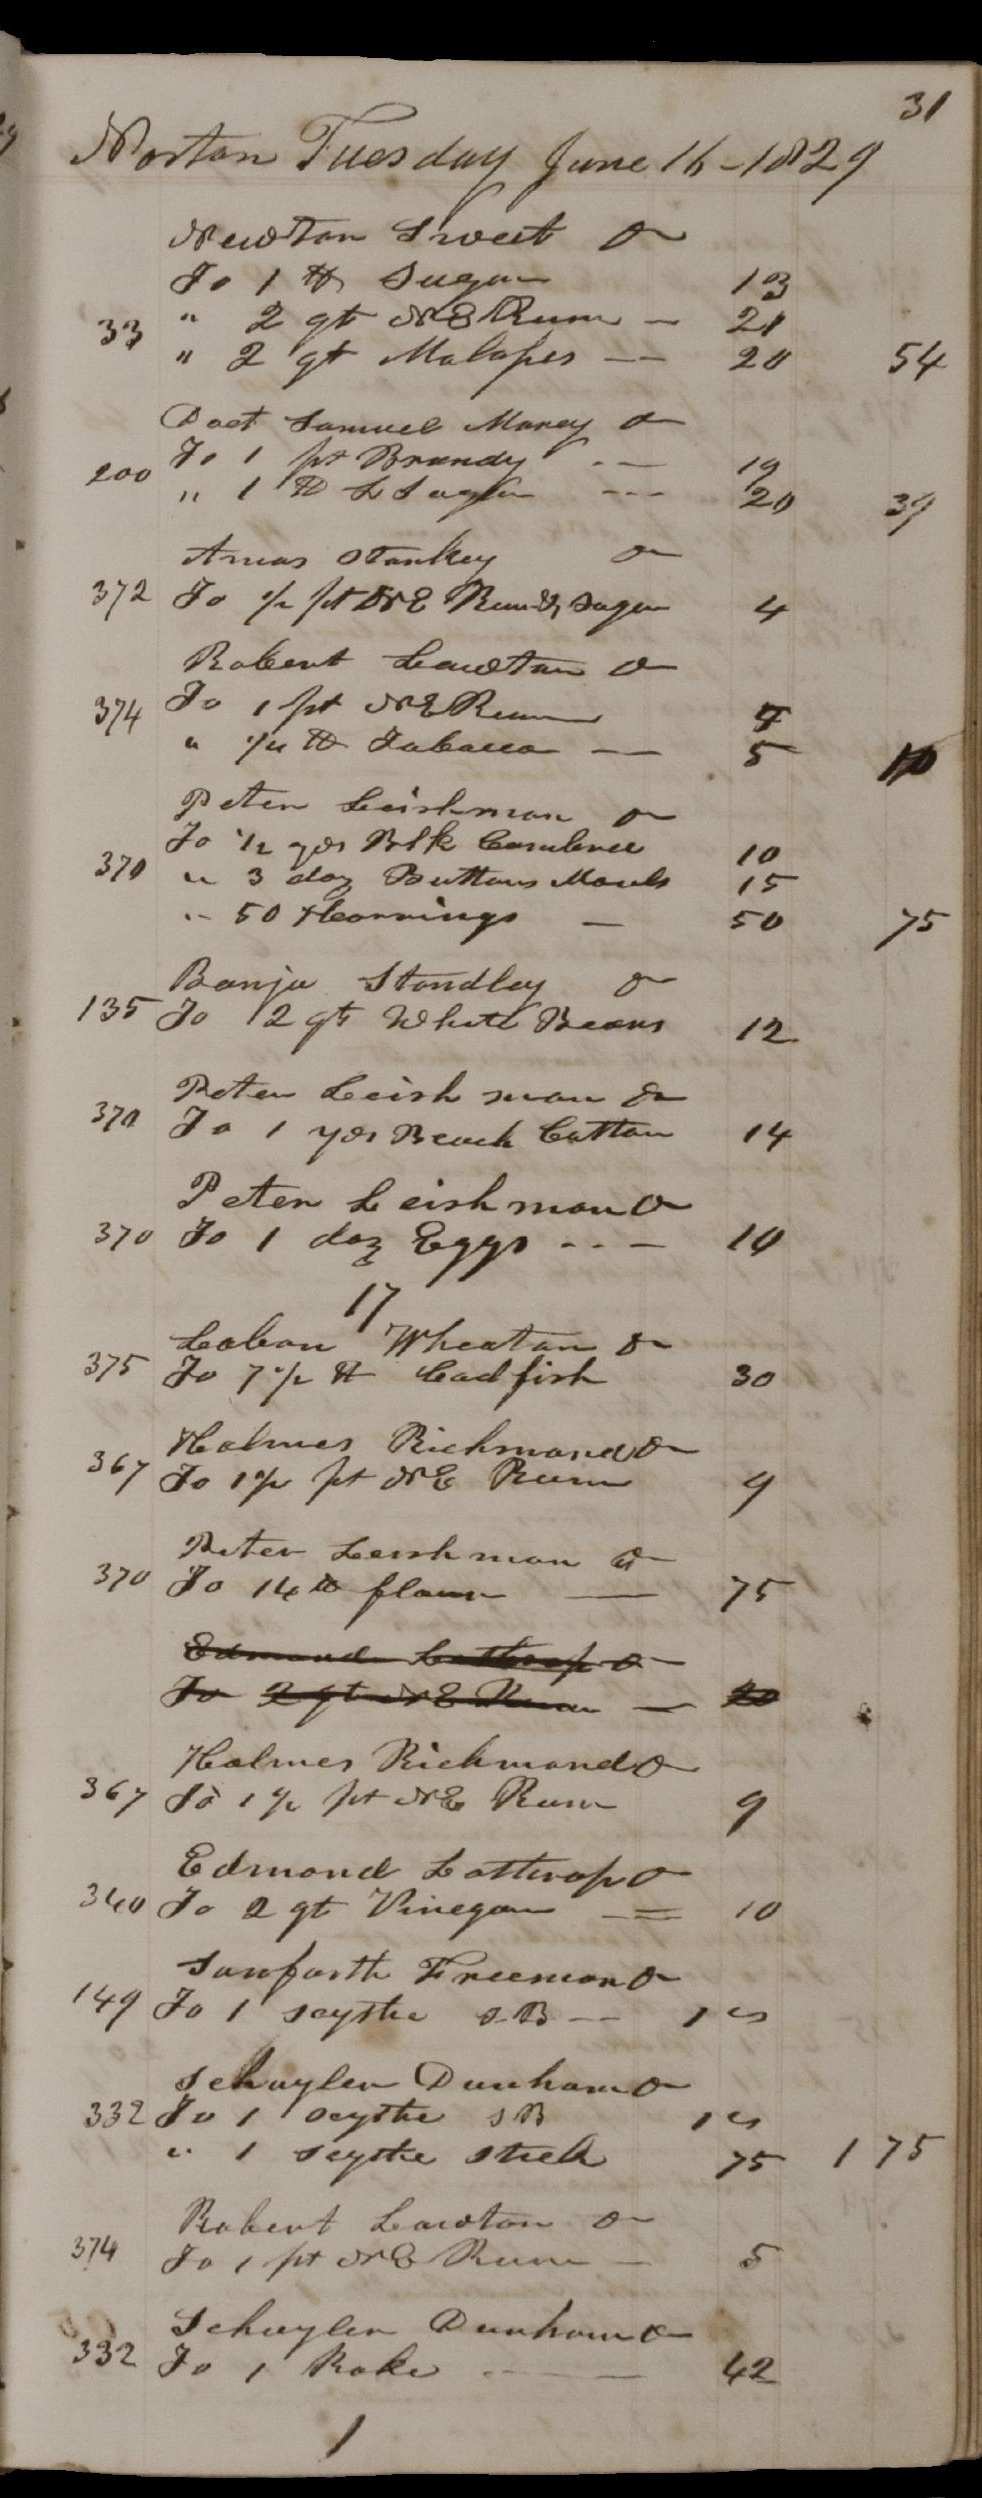 31
Norton Tuesday June 16 - 1829
Newton Sweet Dr
To 1 lb Sugar 13
33 " 2 qt N E Rum - 21
" 2 qt Molasses -- 20 54
Doct Samuel Morey Dr
200 To 1 pt Brandy -- 19
" 1 lb L Sugar --- 20 39
Amos Stankey Dr
372 To 1/2 pt N E Rum & Sugar 4
Robert Lawton Dr
374 To 1 pt N E Rum
" 1/4 lb Tobacco -- 5 10
Peter Leishman Dr
To 1/2 yds Blk Cambrick 10
370 " 3 doz Buttons Moulds 15
" 50 Hearrings - 50 75
Benja Standley Dr
135 To 2 qts White Beans 12
Peter Leishman Dr
370 To 1 yds Cotton 14
Peter Leishman Dr
370 To 1 doz Eggs --- 10
17
Laban Wheaton Dr
375 To 7 1/2 lb Codfish 30
Holmes Richmond Dr
367 To 1 1/2 pt N E Rum 9
Peter Leishman Dr
370 To 14 lb flour -- 75
Edmond Lothrop Dr
To 2 qt N E Rum - 20
Holmes Richmond Dr
367 To 1 1/2 pt N E Rum 9
Edmond Lothrop Dr
340 To 2 qt Vinegar -- 10
Sanforth Freeman Dr
149 To 1 scythe S B -- 1 00
Schuyler Dunham Dr
332 To 1 scythe S B 1 00
" 1 scythe stick 75 1 75
Robert Lawton Dr
374 To 1 pt N E Rum - 5
Schuyler Dunham Dr
332 To 1 Rake -- 42
1